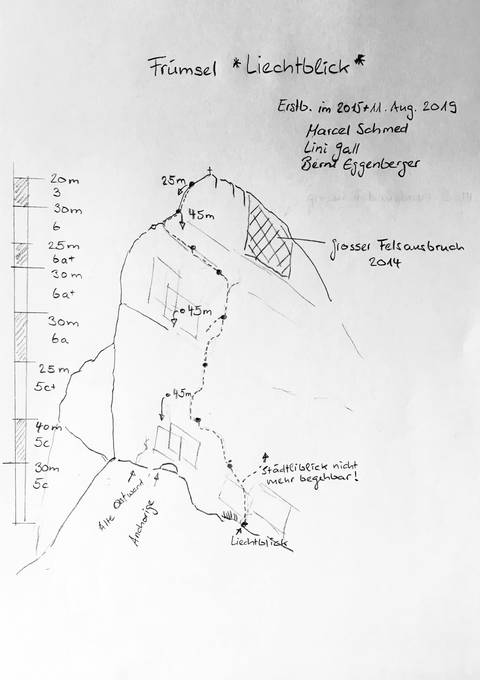 Frümsel *Liechtblick*
Erstb. im 2015+11. Aug. 2019
Marcel Schmed
Lini Gall
Bernd Eggenberger
25m
45m
grosser Felsausbruch
2014
45m
45m
Städtliblick nicht
mehr begehbar!
Alte Ostwand
Liechtblick
20m
3
30m
6
25m
6a+
30m
6a+
30m
6a
25m
5c+
40m
5c
30m
5c